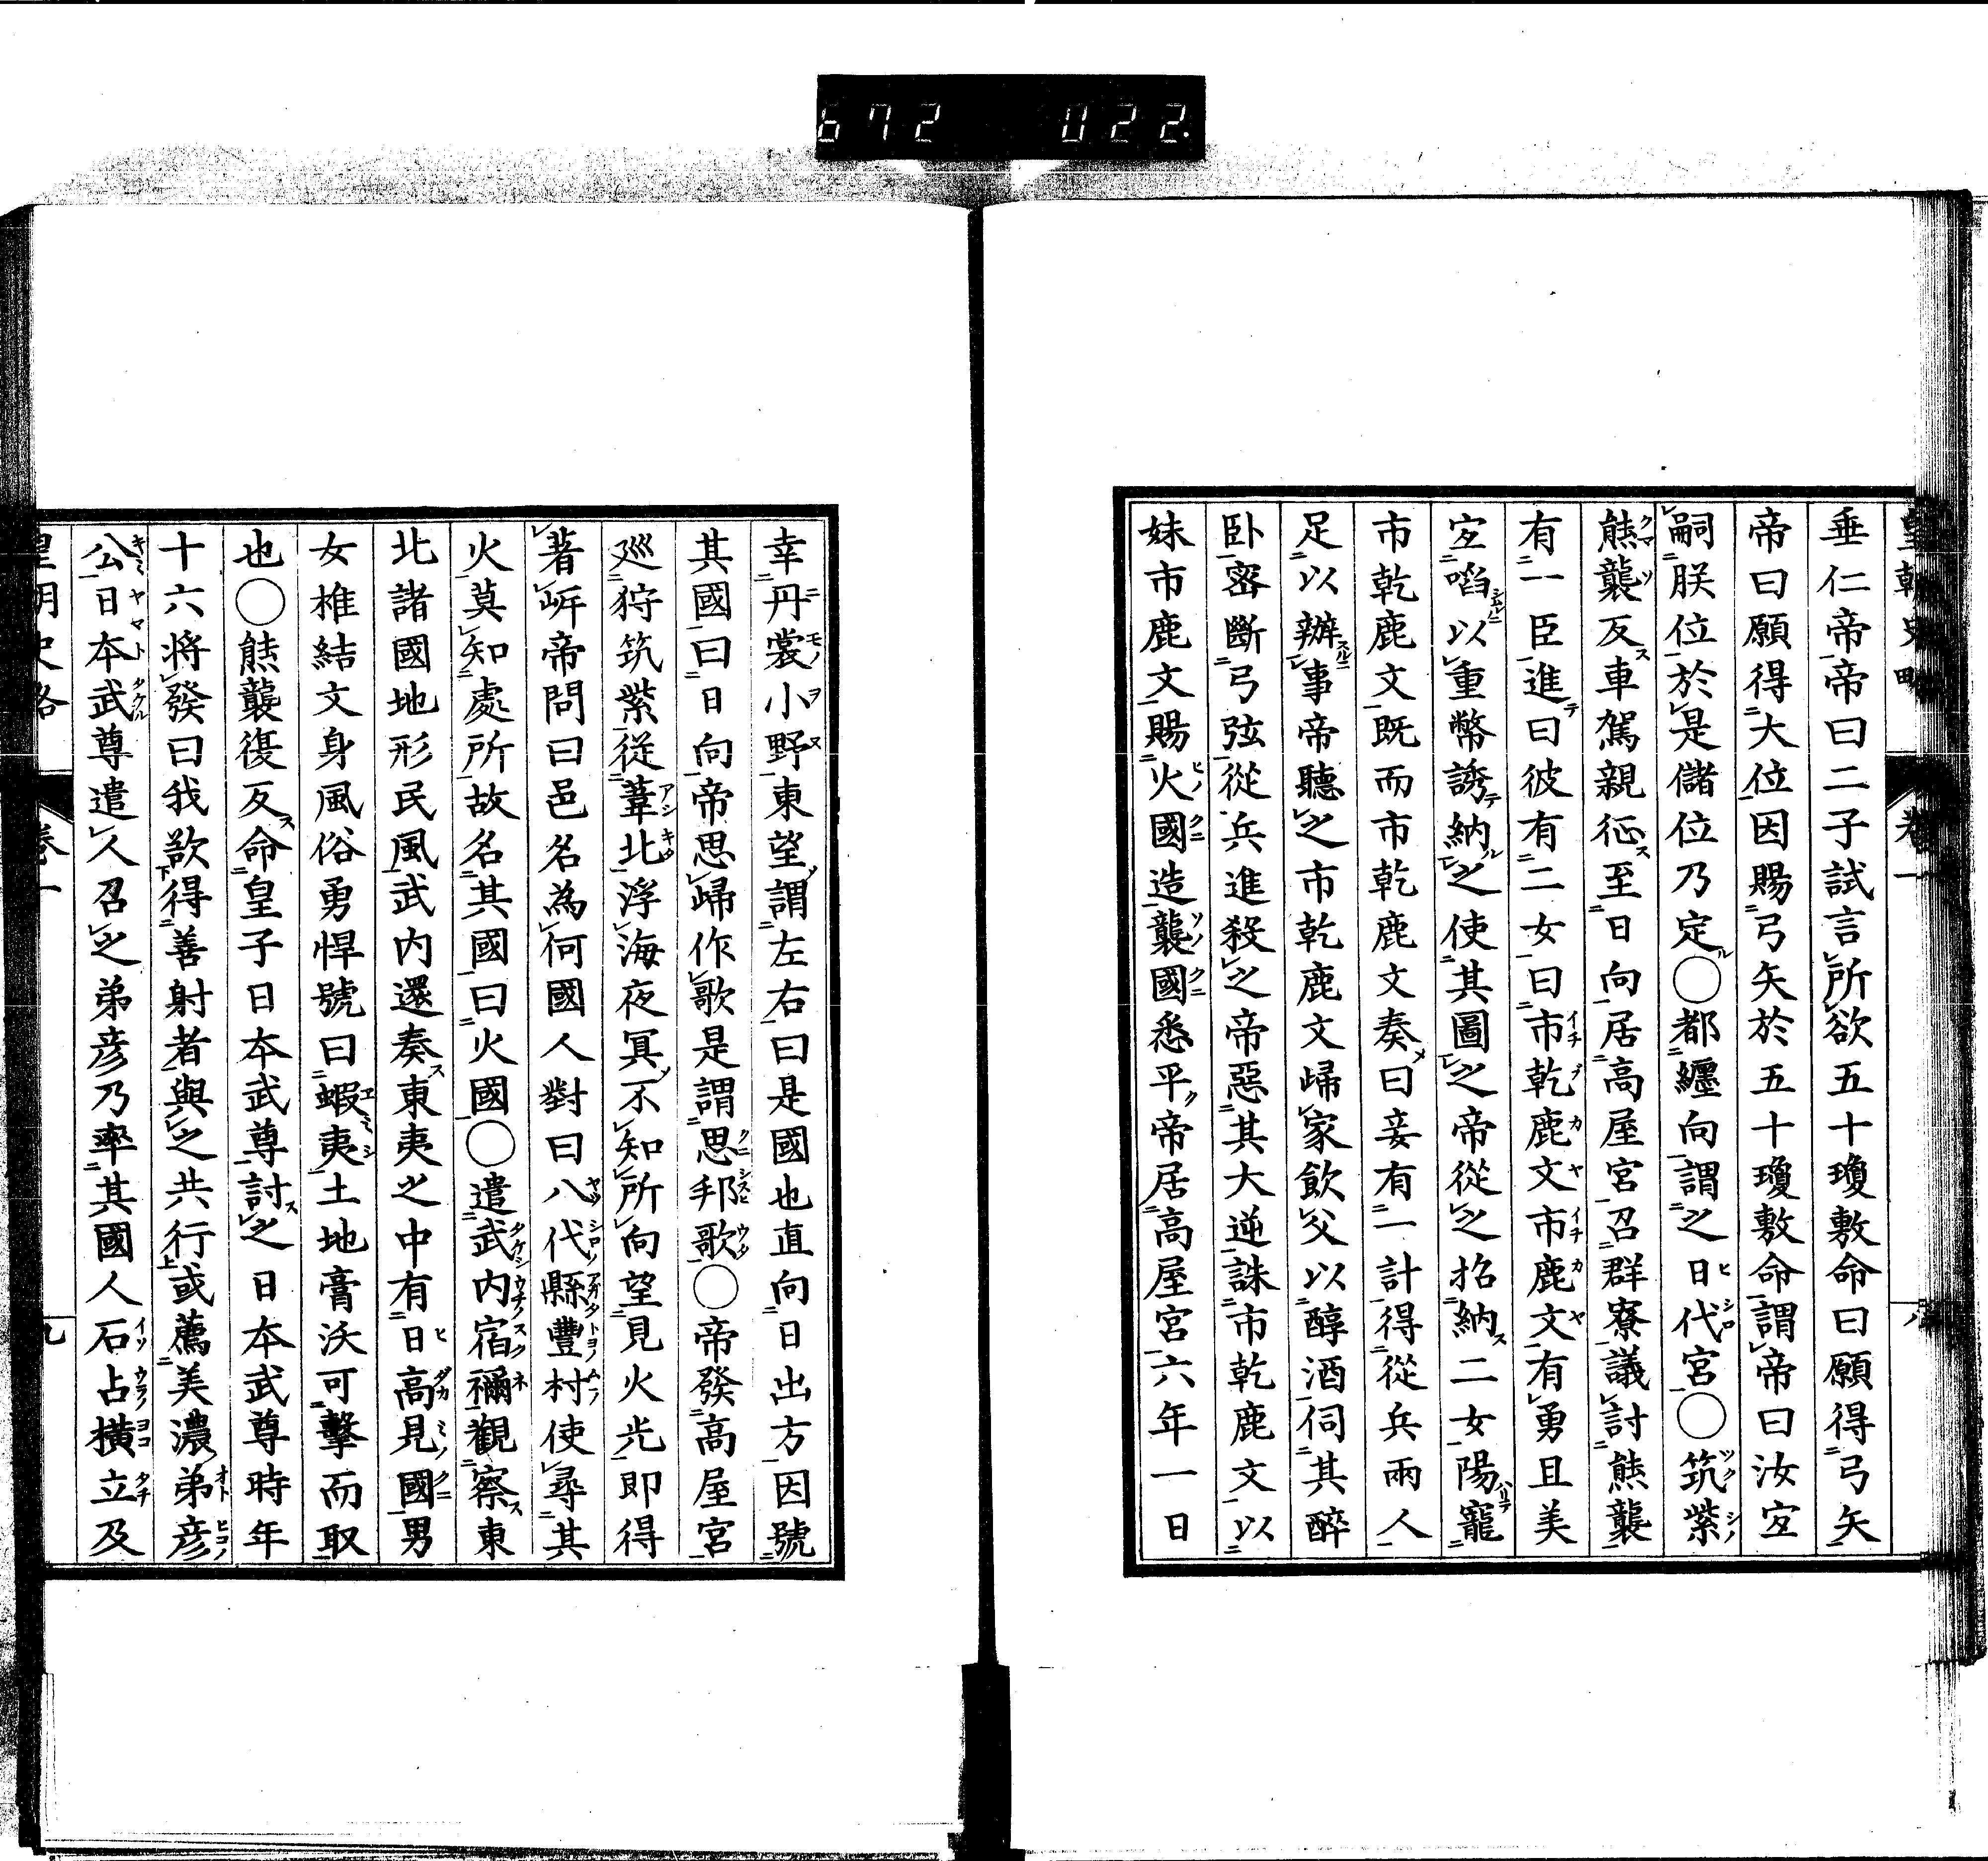 672 022.
皇朝史略 卷一
垂仁帝帝曰二子試言所欲五十瓊敷命曰願得弓矢
帝曰願得大位因賜弓矢於五十瓊敷命謂帝曰汝宜
嗣朕位於是儲位乃定○都纒向謂之日代宮○筑紫
熊襲反車駕親征至日向居高屋宮召群寮議討熊襲
有一臣進曰彼有二女曰市乾鹿文市鹿文有勇且美
宜啗以重幣誘納之使其圖之帝從之招納二女陽寵
市乾鹿文既而市乾鹿文奏曰妾有一計得從兵兩人
足以辦事帝聽之市乾鹿文歸家飲父以醇酒伺其醉
卧密斷弓弦從兵進殺之帝惡其大逆誅市乾鹿文以
妹市鹿文賜火國造襲國悉平帝居高屋宮六年一日
幸丹裳小野東望謂左右曰是國也直向日出方因號
其國曰日向帝思歸作歌是謂思邦歌○帝發高屋宮
巡狩筑紫從葦北浮海夜冥不知所向望見火光即得
著岍帝問曰邑名為何國人對曰八代縣豐村使尋其
火莫知處所故名其國曰火國○遣武内宿禰觀察東
北諸國地形民風武内還奏東夷之中有日高見國男
女椎結文身風俗勇悍號曰蝦夷土地膏沃可擊而取
也○熊襲復反命皇子日本武尊討之日本武尊時年
十六將發曰我欲得善射者與之共行或薦美濃弟彦
公日本武尊遣人召之弟彦乃率其國人石占横立及
皇朝史略 卷一 九